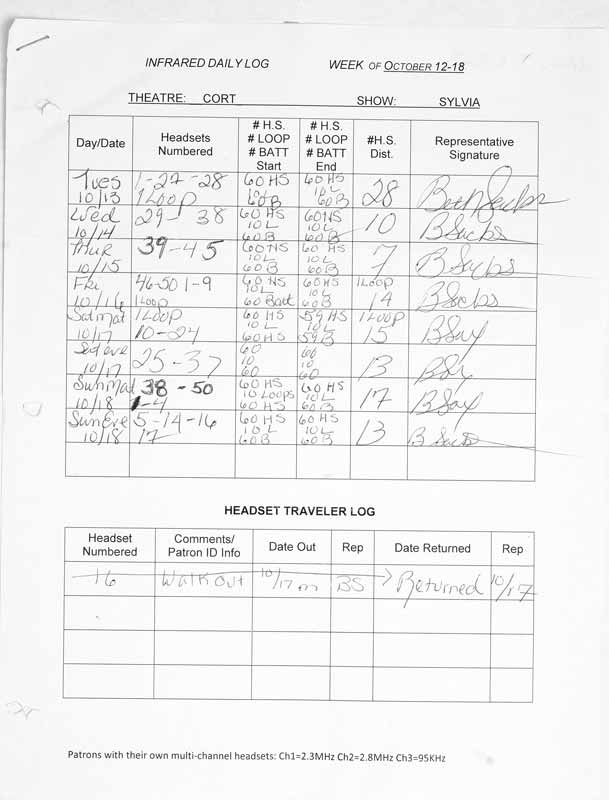 INFRARED DAILY LOG WEEK OF OCTOBER 12-18
THEATRE: CORT SHOW: SYLVIA
Day/Date Headsets Numbered # H.S. # LOOP # BATT Start # H.S. # LOOP # BATT End #H.S. Dist. Representative Signature
Tues 10/13 1-27-28 1 LOOP 60 HS 10 L 60 B 60 HS 10 L 60 B 28 Beth Sachs
Wed 10/14 29-38 60 HS 10 L 60 B 60 HS 10 L 60 B 10 B Sachs
Thur 10/15 39-45 60 HS 10 L 60 B 60 HS 10 L 60 B 7 B Sachs
Fri 10/16 46-50 1-9 1 LOOP 60 HS 10 L 60 Batt 60 HS 10 L 60 B 1 LOOP 14 B Sachs
Sat mat 10/17 1 LOOP 10-24 60 HS 10 L 60 HS 59 HS 10 L 59 B 1 LOOP 15 B Say
Sat eve 10/17 25-37 60 10 60 60 10 60 13
Sun Mat 10/18 38-50 1-4 60 HS 10 Loops 60 HS 60 HS 10 L 60 B 17 B Say
Sun Eve 10/18 5-14-16 17 60 HS 10 L 60 B 60 HS 10 L 60 B 13 B Sachs
HEADSET TRAVELER LOG
Headset Numbered Comments/ Patron ID Info Date Out Rep Date Returned Rep
16 Walkout 10/17 m BS Returned 10/17
Patrons with their own multi-channel headsets: Ch1=2.3MHz Ch2=2.8MHz Ch3=95KHz